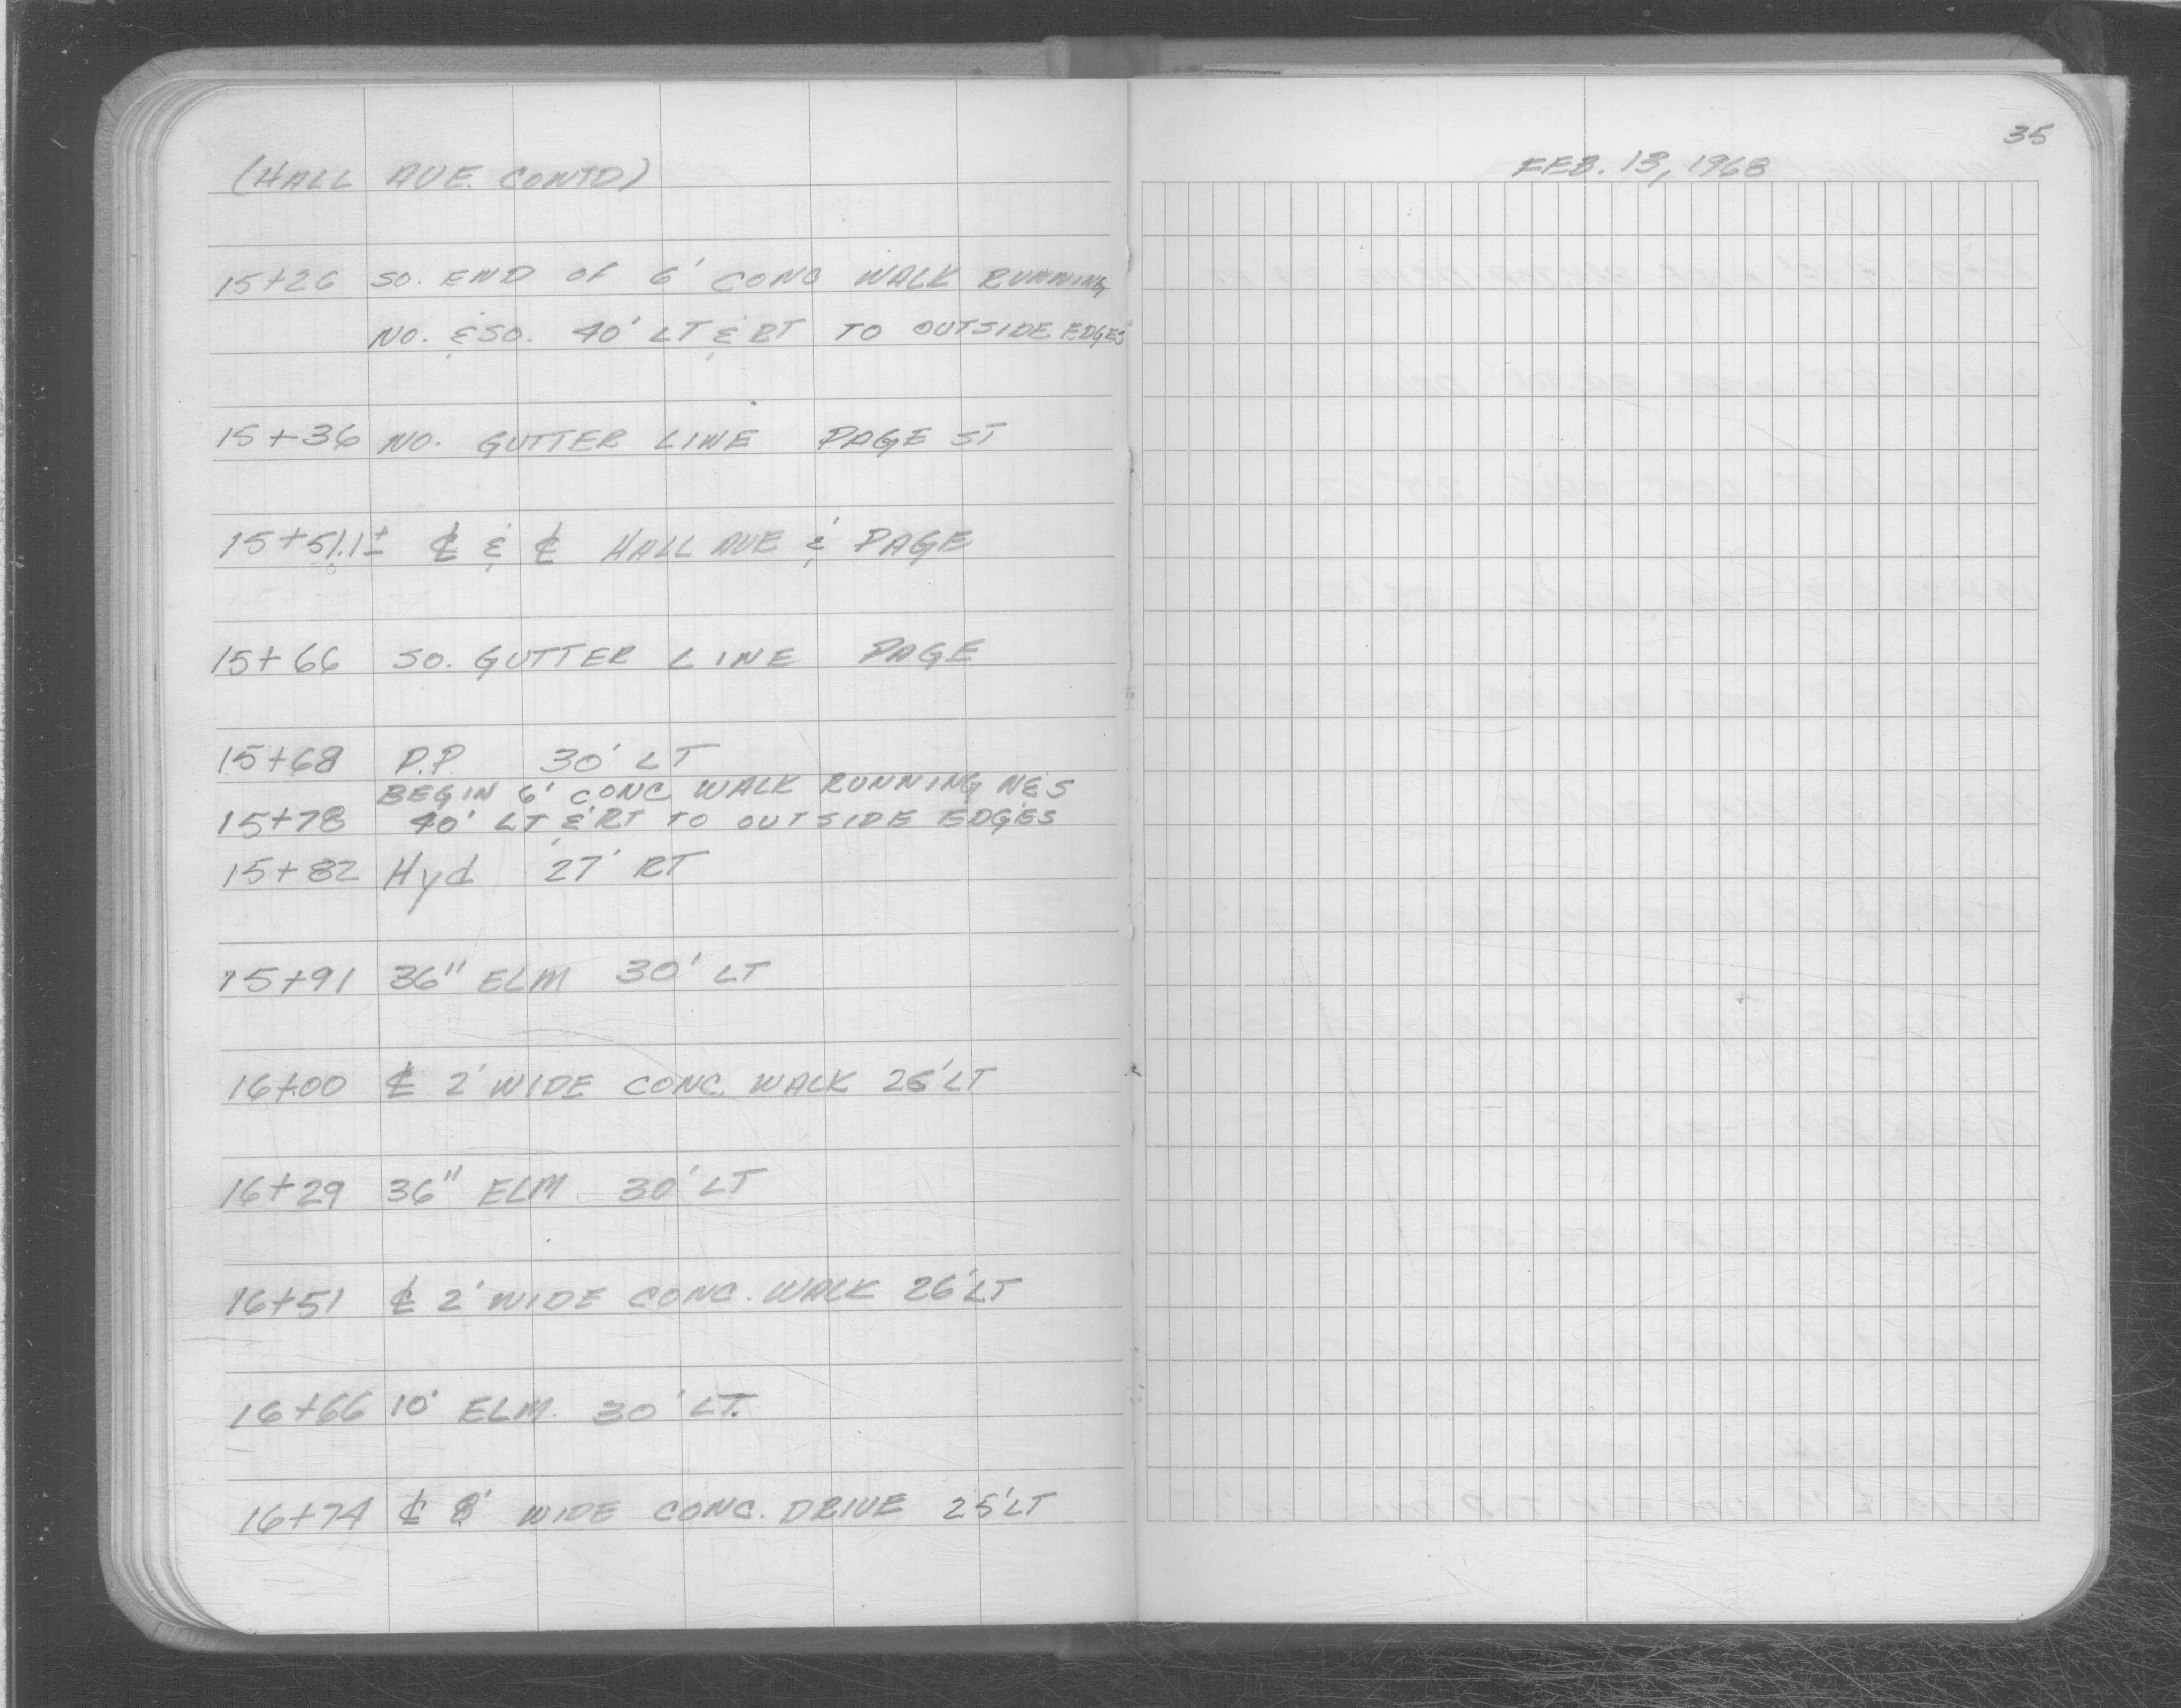 (HALL AVE. CONTD)
15+26 SO. END OF 6' CONC WALK RUNNING
NO. & SO. 40' LT & RT TO OUTSIDE EDGES
15+36 NO. GUTTER LINE PAGE ST
15+51.1± ℄ & ℄ HALL AVE & PAGE
15+66 SO. GUTTER LINE PAGE
15+68 P.P. 30' LT
BEGIN 6' CONC WALK RUNNING N&S
15+78 40' LT & RT TO OUTSIDE EDGES
15+82 Hyd 27' RT
15+91 36" ELM 30' LT
16+00 ℄ 2' WIDE CONC. WALK 26' LT
16+29 36" ELM 30' LT
16+51 ℄ 2' WIDE CONC. WALK 26' LT
16+66 10' ELM. 30' LT.
16+74 ℄ 8' WIDE CONC. DRIVE 25' LT
35
FEB. 13, 1968